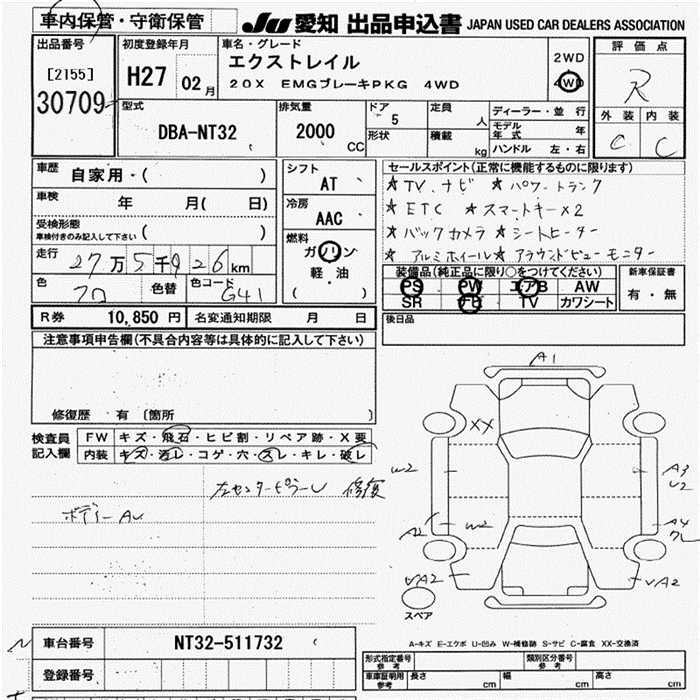 車内保管・守衛保管
JU 愛知 出品申込書 JAPAN USED CAR DEALERS ASSOCIATION
出品番号
[2155]
30709
初度登録年月
H27 02月
車名・グレード
エクストレイル
20X EMGブレーキPKG 4WD
2WD
4WD
評価点
R
外装 内装
C C
型式
DBA-NT32
排気量
2000 CC
ドア
5
形状
定員
人
積載
kg
ディーラー・並行
モデル年式 年
ハンドル 左・右
車歴
自家用・( )
車検
年 月( 日)
受検形態
車検付きのみ記入して下さい ( )
走行
27万5千926km
色
クロ
色替
色コード
G41
シフト
AT
冷房
AAC
燃料
ガソリン
軽・油
( )
セールスポイント(正常に機能するものに限ります)
★TV.ナビ ★パワートランク
★ETC ★スマートキー×2
★バックカメラ ★シートヒーター
★アルミホイール ★アラウンドビューモニター
装備品(純正品に限り○をつけてください)
PS PW エアB AW
SR TV カワシート
新車保証書
有・無
後日品
R券 10,850円 名変通知期限 月 日
注意事項申告欄(不具合内容等は具体的に記入して下さい)
修復歴 有 [箇所 ]
検査員記入欄
FW キズ・飛石・ヒビ割・リペア跡・X要
内装 キズ・汚レ・コゲ・穴・スレ・キレ・破レ
左センターピラーレ 修復
ボディーAU
A1
XX
W2
A3
U2
A2
W2
A4
VA2
VA2
スペア
A-キズ E-エクボ U-凹み W-補修跡 S-サビ C-腐食 XX-交換済
車台番号 NT32-511732
登録番号
形式指定番号 参考
類別区分番号 参考
車庫証明用 参考
長さ cm 幅 cm 高さ cm